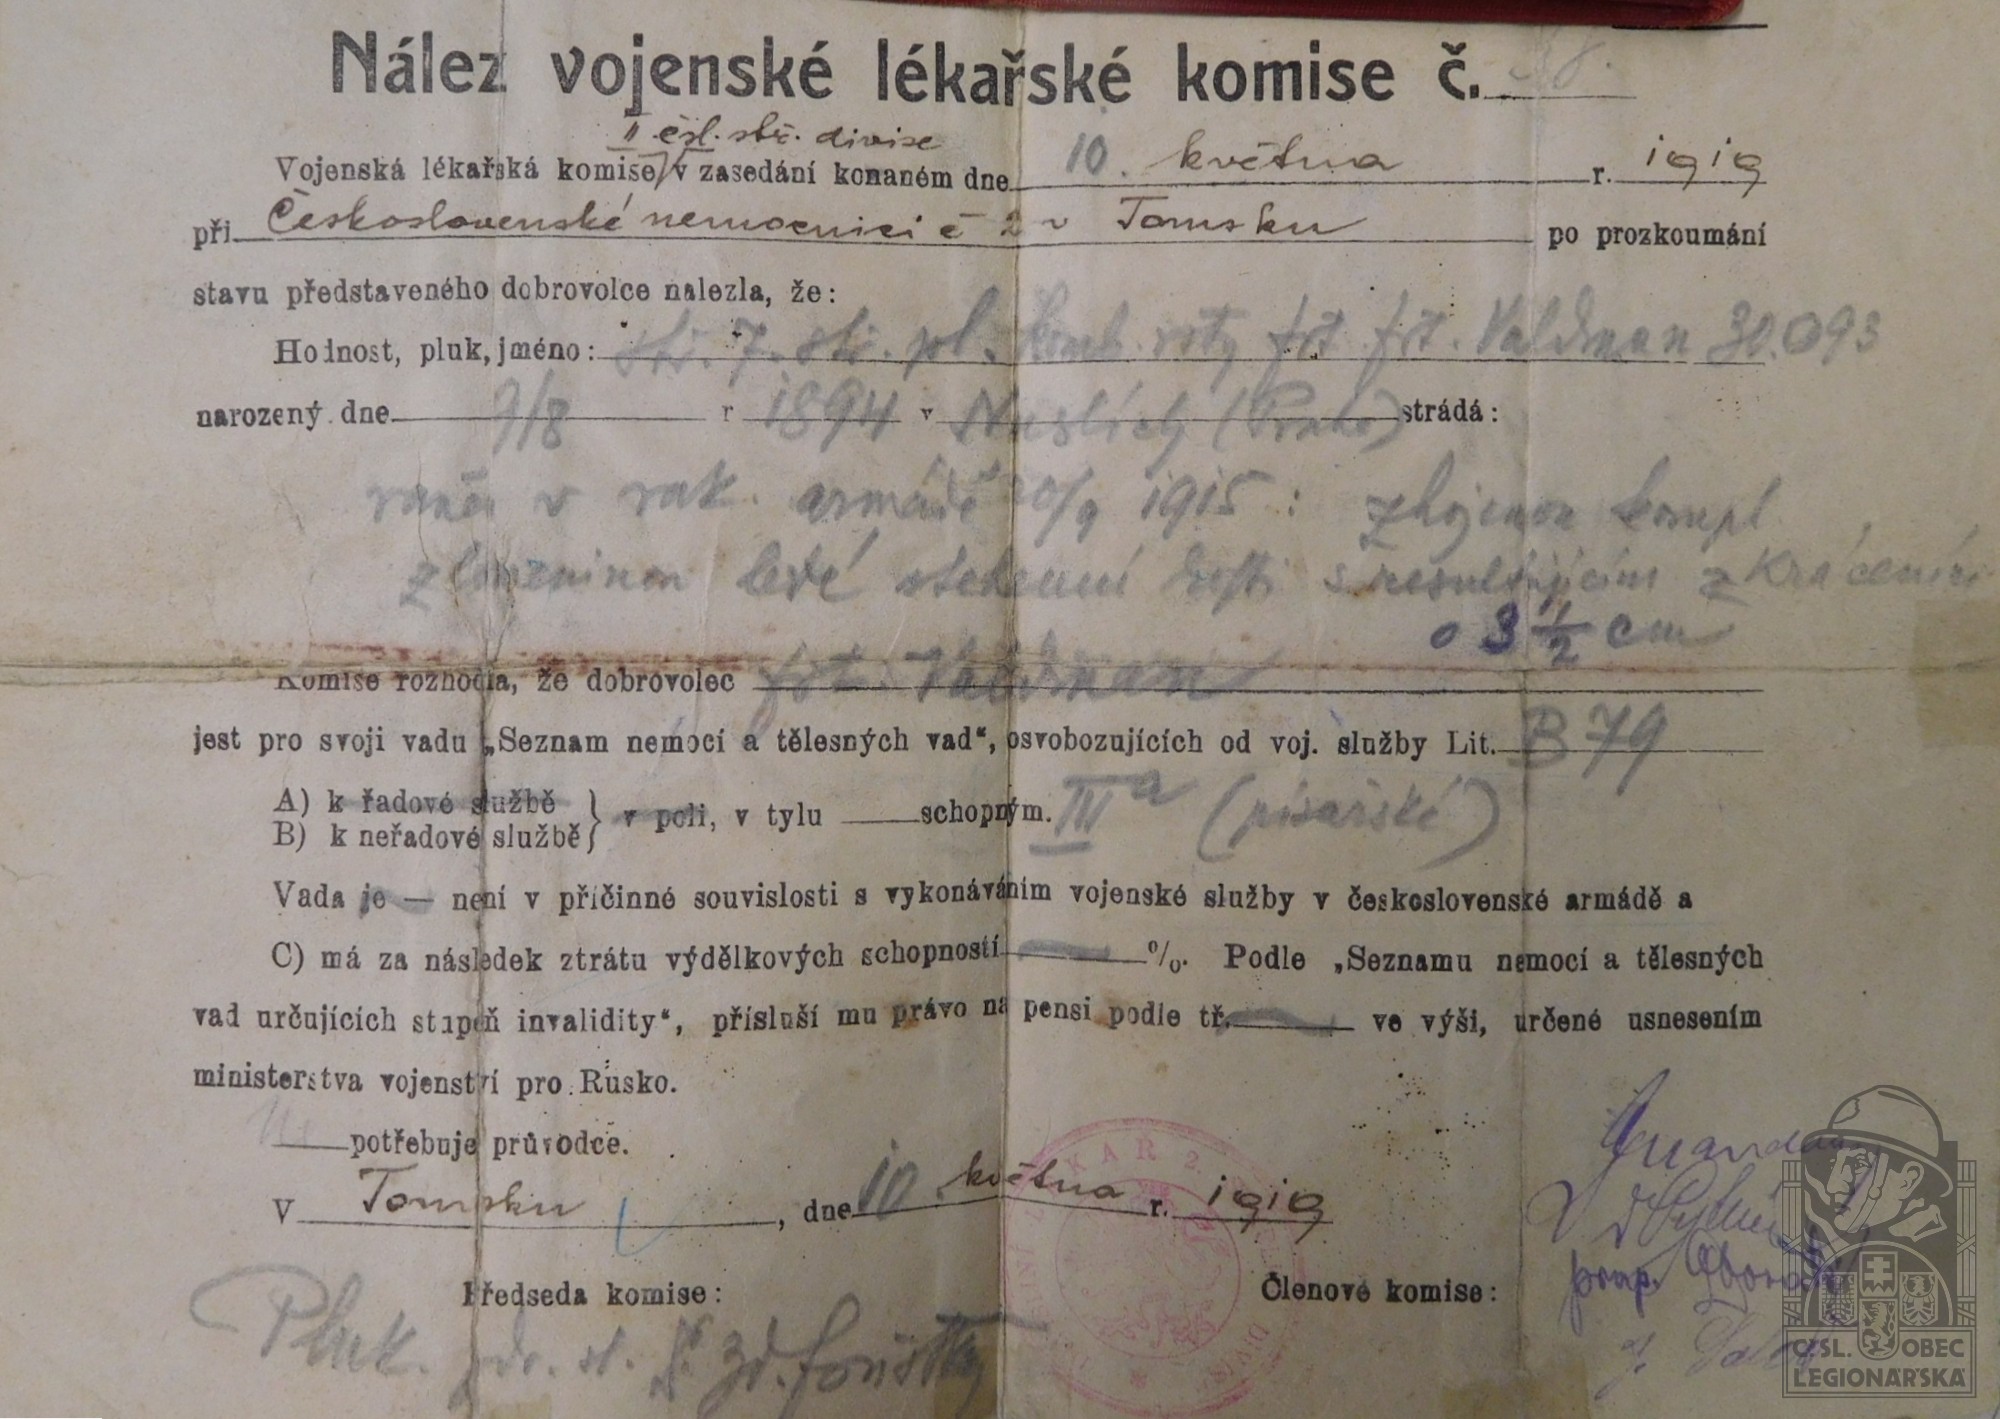 Nález vojenské lékařské komise č.
II čsl. stř. divise
Vojenská lékařská komise v zasedání konaném dne 10. května r. 1919
při Československé nemocnici č 2 v Tomsku po prozkoumání
stavu představeného dobrovolce nalezla, že:
Hodnost, pluk, jméno: stř. 7. stř. pl. frt. Valdman 30.093
narozený dne 9/8 r 1894 v Nuslích (Praha) strádá:
raněn v rak. armádě 20/9 1915: zhojenou kompl
zlomeninou levé stehenní kosti s resultujícím zkrácením
o 3 1/2 cm
Komise rozhodla, že dobrovolec frt. Valdman
jest pro svoji vadu „Seznam nemocí a tělesných vad“, osvobozujících od voj. služby Lit. B 79
A) k řadové službě
B) k neřadové službě } v poli, v tylu schopným. IIIa (písařské)
Vada je — není v příčinné souvislosti s vykonáváním vojenské služby v československé armádě a
C) má za následek ztrátu výdělkových schopností %. Podle „Seznamu nemocí a tělesných
vad určujících stupeň invalidity“, přísluší mu právo na pensi podle tř. ve výši, určené usnesením
ministerstva vojenství pro Rusko.
potřebuje průvodce.
V Tomsku, dne 10. května r. 1919
Předseda komise: Členové komise:
Pluk. zdr. st. Dr
ČSL. OBEC
LEGIONÁŘSKÁ